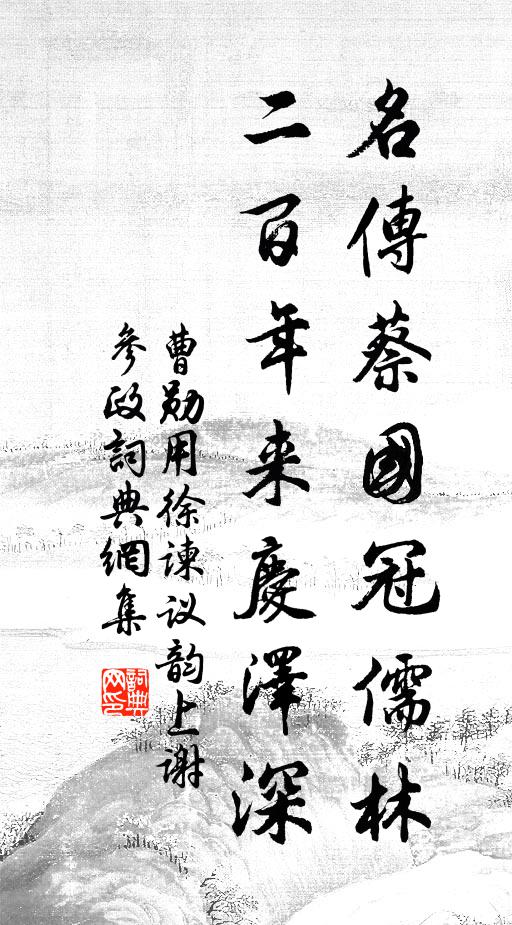 名傳蔡國冠儒林
二百年来慶澤深
曹勛用徐諫议韵上谢
參政詞典網集
詞典网印